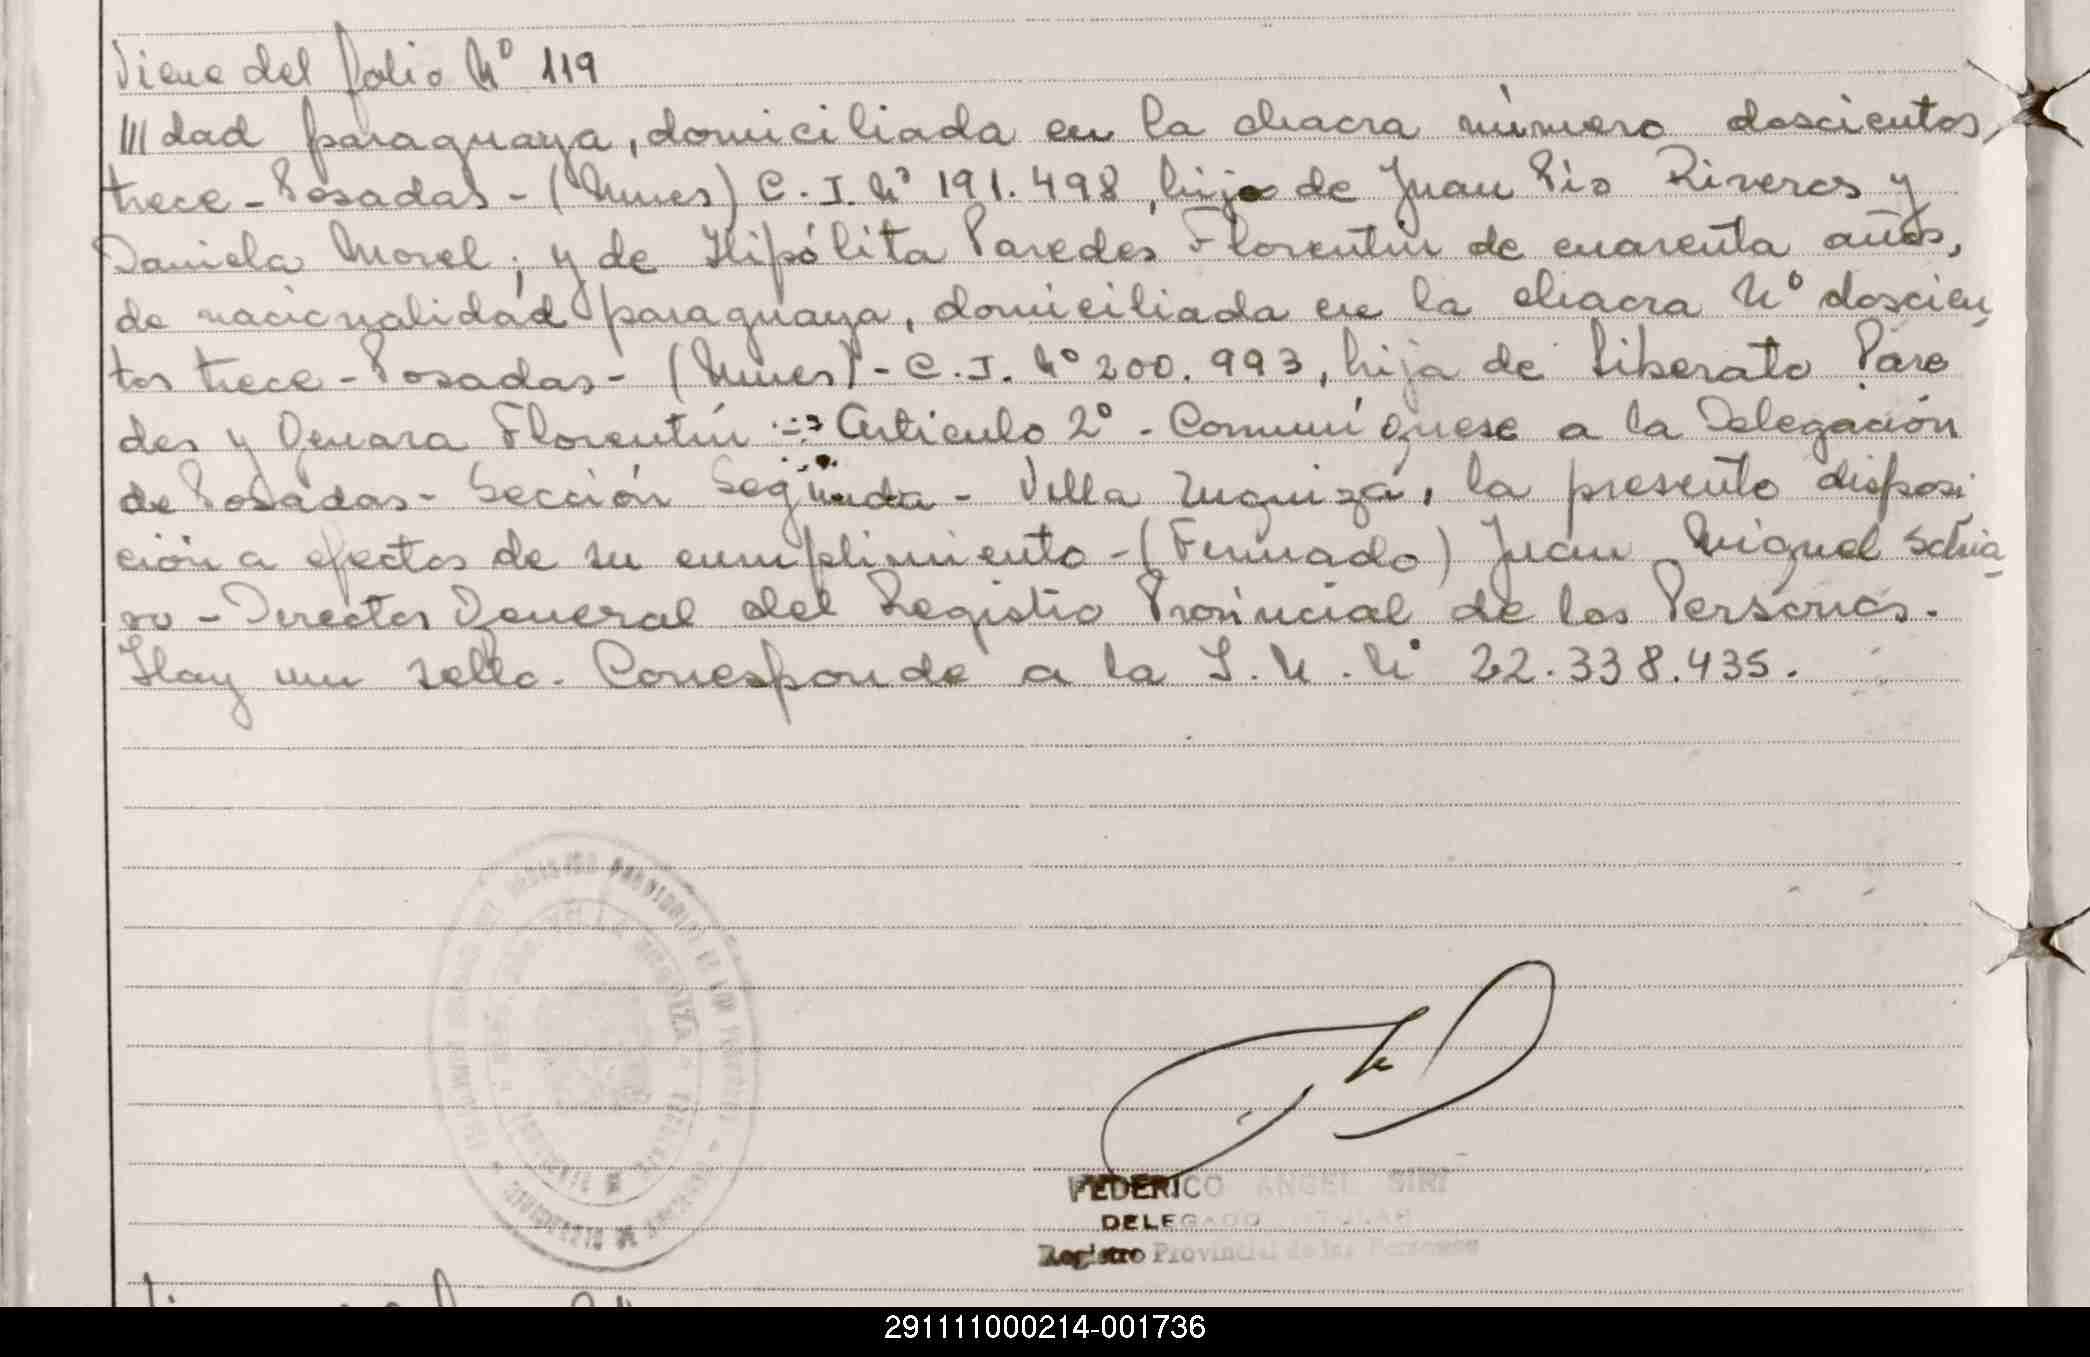 Viene del folio Nº 119
///dad paraguaya, domiciliada en la chacra número doscientos
trece - Posadas - (Mnes) C. I. Nº 191.498, hijo de Juan Pío Riveros y
Daniela Morel; y de Hipólita Paredes Florentín de cuarenta años,
de nacionalidad paraguaya, domiciliada en la chacra Nº doscien
tos trece - Posadas - (Mnes) - C. I. Nº 200.993, hija de Liberato Pare
des y Genara Florentín Articulo 2º - Comuníquese a la Delegación
de Posadas - Sección Segunda - Villa Urquiza, la presente disposi
ción a efectos de su cumplimiento - (Firmado) Juan Miguel
Director General del Registro Provincial de las Personas.
Hay un sello. Corresponde a la I. N. Nº 22.338.435.
FEDERICO ANGEL SIRI
DELEGADO TITULAR
Registro Provincial de las Personas
291111000214-001736